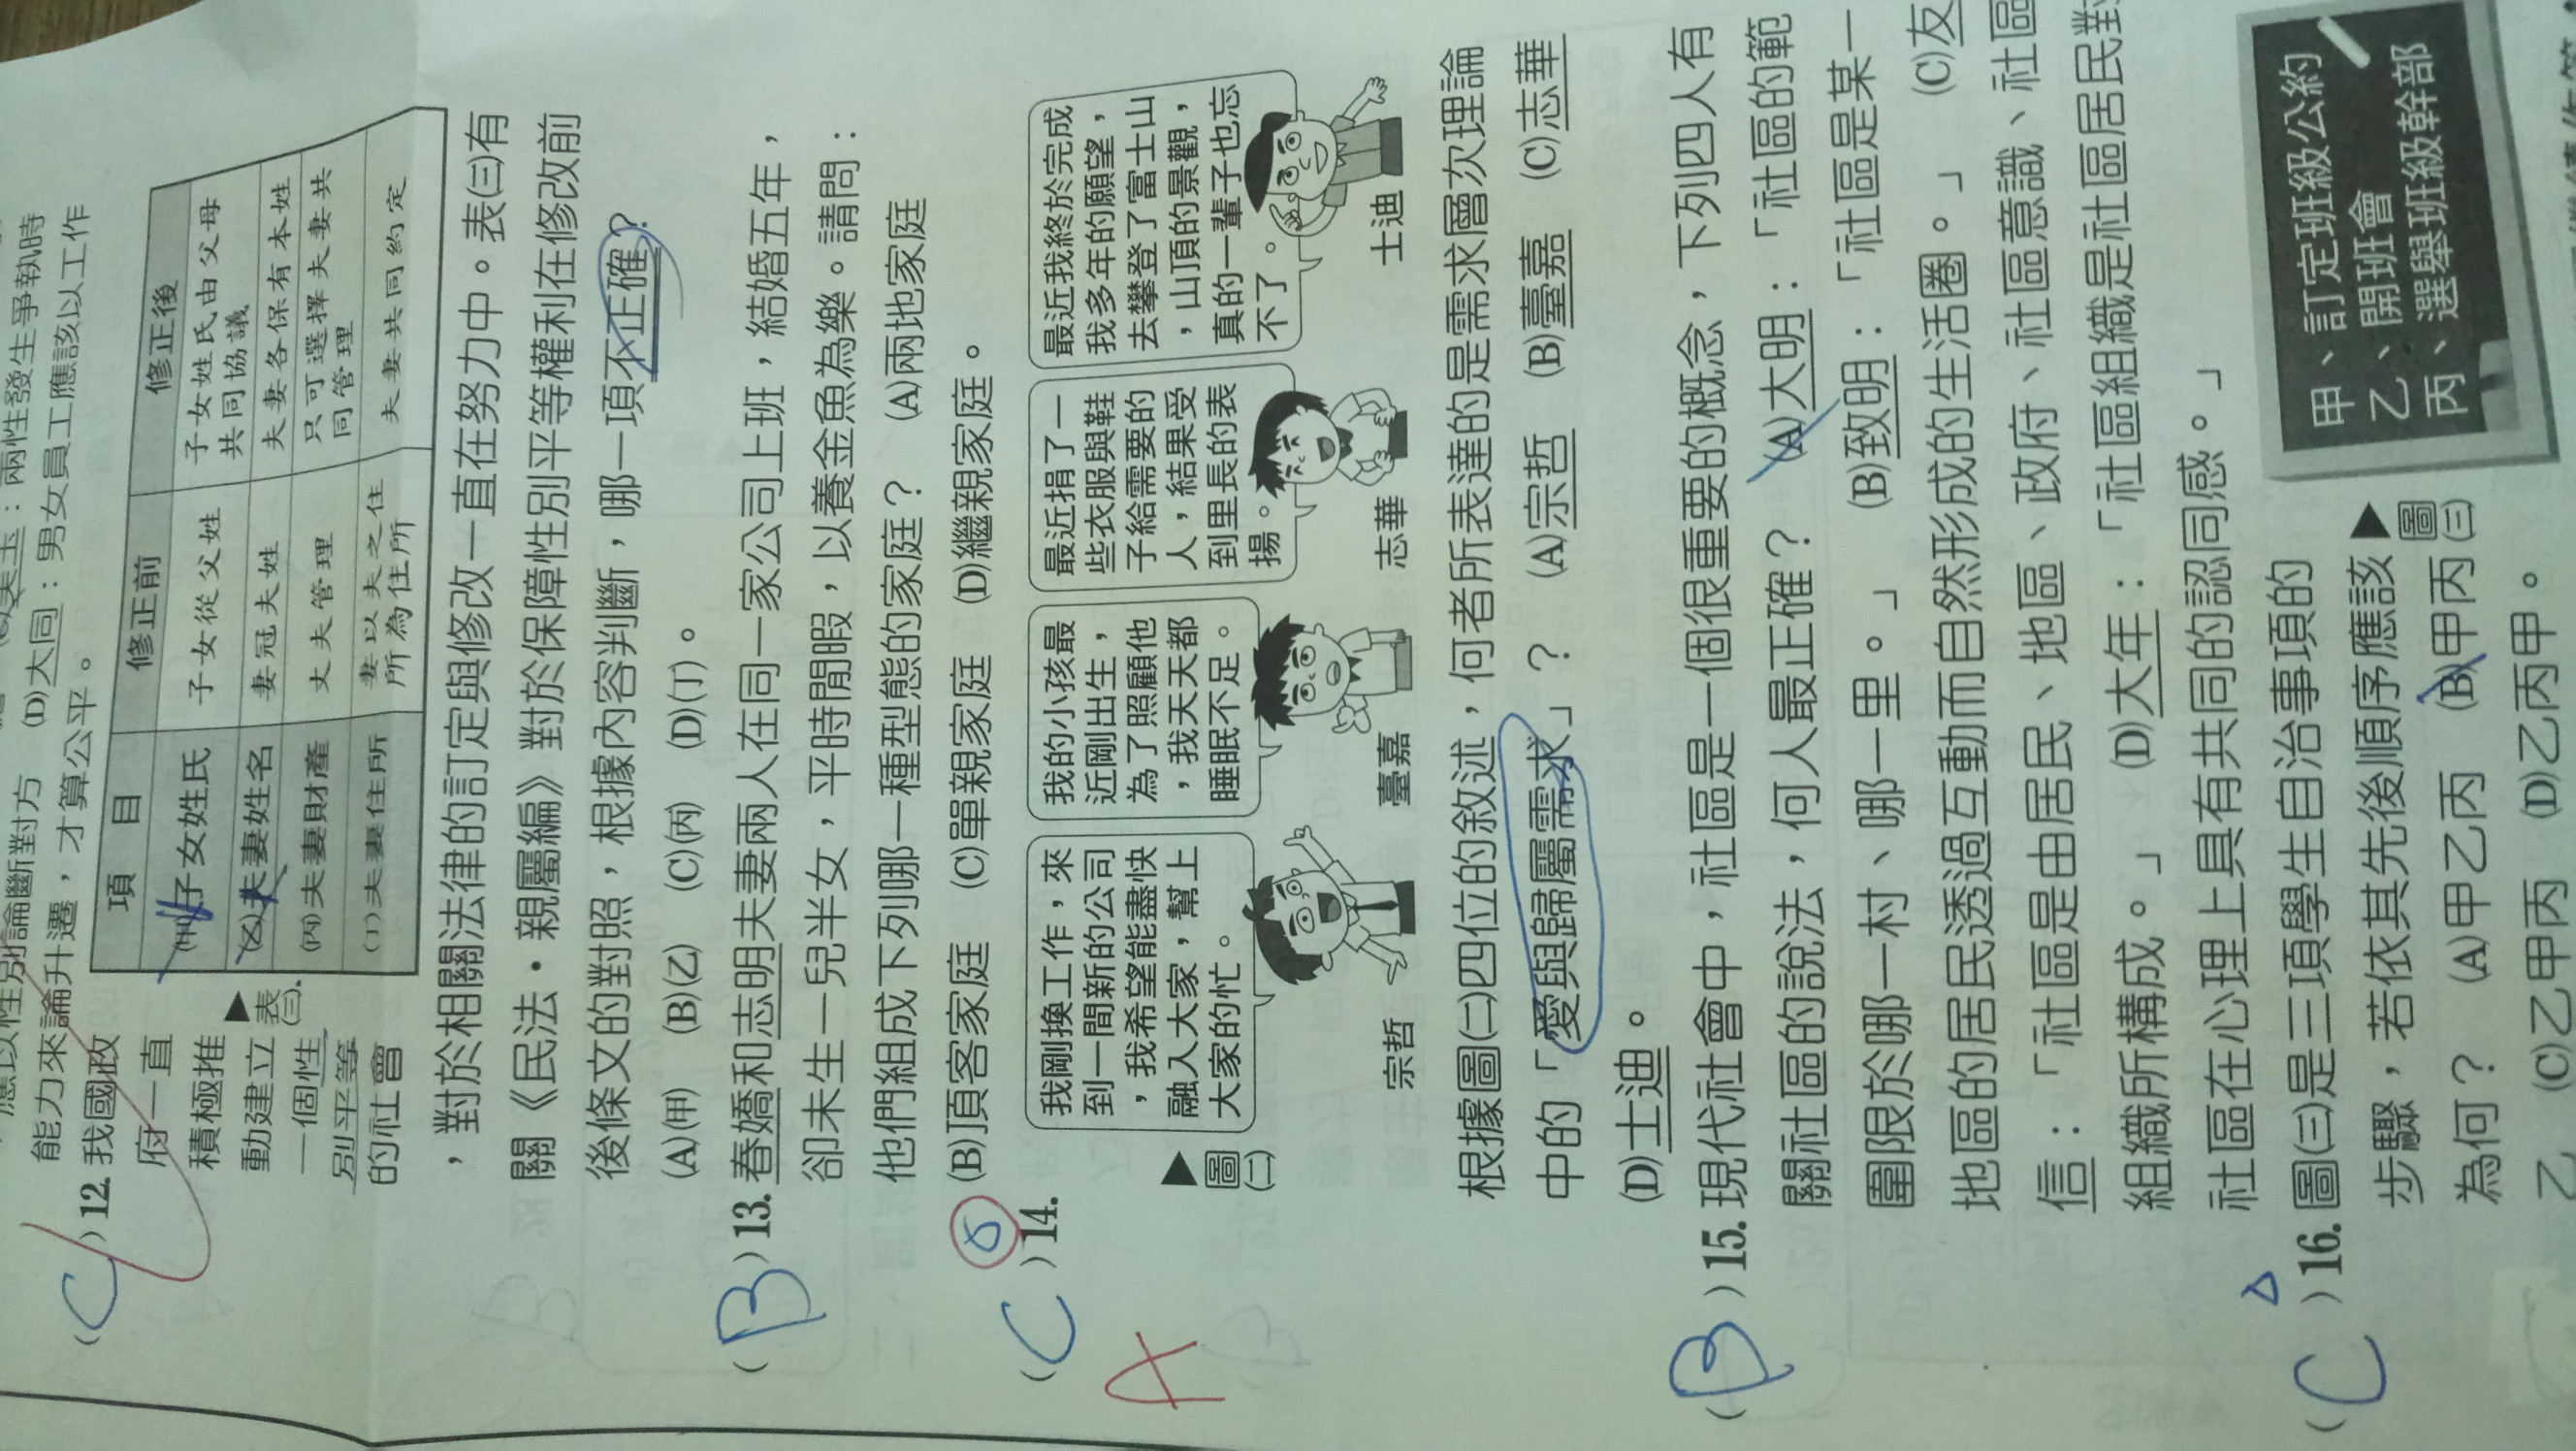 應以性別論斷對方 (D)大同：男女員工應該以工作
能力來論升遷，才算公平。
兩性發生爭執時
( C )12.我國政
府一直
積極推
動建立
一個性
別平等
的社會
▶表(三)
項 目 修正前 修正後
(甲)子女姓氏 子女從父姓 子女姓氏由父母共同協議
(乙)夫妻姓名 妻冠夫姓 夫妻各保有本姓
(丙)夫妻財產 丈夫管理 只可選擇夫妻共同管理
(丁)夫妻住所 妻以夫之住所為住所 夫妻共同約定
，對於相關法律的訂定與修改一直在努力中。表(三)有
關《民法·親屬編》對於保障性別平等權利在修改前
後條文的對照，根據內容判斷，哪一項不正確？
(A)(甲) (B)(乙) (C)(丙) (D)(丁)。
( B )13.春嬌和志明夫妻兩人在同一家公司上班，結婚五年，
卻未生一兒半女，平時閒暇，以養金魚為樂。請問：
他們組成下列哪一種型態的家庭？ (A)兩地家庭
(B)頂客家庭 (C)單親家庭 (D)繼親家庭。
( C )14.
A
▶圖(二)
我剛換工作，來
到一間新的公司
，我希望能盡快
融入大家，幫上
大家的忙。
宗哲
我的小孩最
近剛出生，
為了照顧他
，我天天都
睡眠不足。
臺嘉
最近捐了一
些衣服與鞋
子給需要的
人，結果受
到里長的表
揚。
志華
最近我終於完成
我多年的願望，
去攀登了富士山
，山頂的景觀，
真的一輩子也忘
不了。
士迪
根據圖(二)四位的敘述，何者所表達的是需求層次理論
中的「愛與歸屬需求」？ (A)宗哲 (B)臺嘉 (C)志華
(D)士迪。
( B )15.現代社會中，社區是一個很重要的概念，下列四人有
關社區的說法，何人最正確？ (A)大明：「社區的範
圍限於哪一村、哪一里。」 (B)致明：「社區是某一
地區的居民透過互動而自然形成的生活圈。」 (C)友
信：「社區是由居民、地區、政府、社區意識、社區
組織所構成。」 (D)大年：「社區組織是社區居民對
社區在心理上具有共同的認同感。」
( C )16.圖(三)是三項學生自治事項的
步驟，若依其先後順序應該
為何？ (A)甲乙丙 (B)甲丙
乙 (C)乙甲丙 (D)乙丙甲。
▶圖(三)
甲、訂定班級公約
乙、開班會
丙、選舉班級幹部